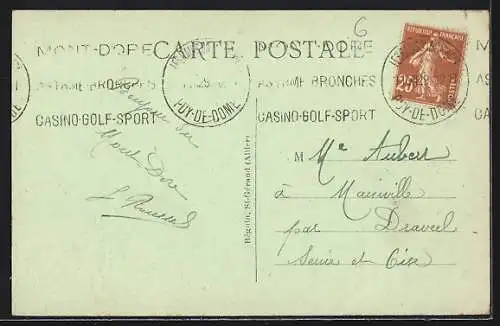 6
MONT-DORE
CARTE POSTALE
ASTHME BRONCHES
CASINO-GOLF-SPORT
PUY-DE-DOME
MONT-DORE
ASTHME BRONCHES
CASINO-GOLF-SPORT
PUY-DE-DOME
REPUBLIQUE FRANÇAISE
25
POSTES
du
Mont Dore
Bégoin, St-Gérand (Allier)
M Me Aubert
à Mainville
par Draveil
Seine et Oise